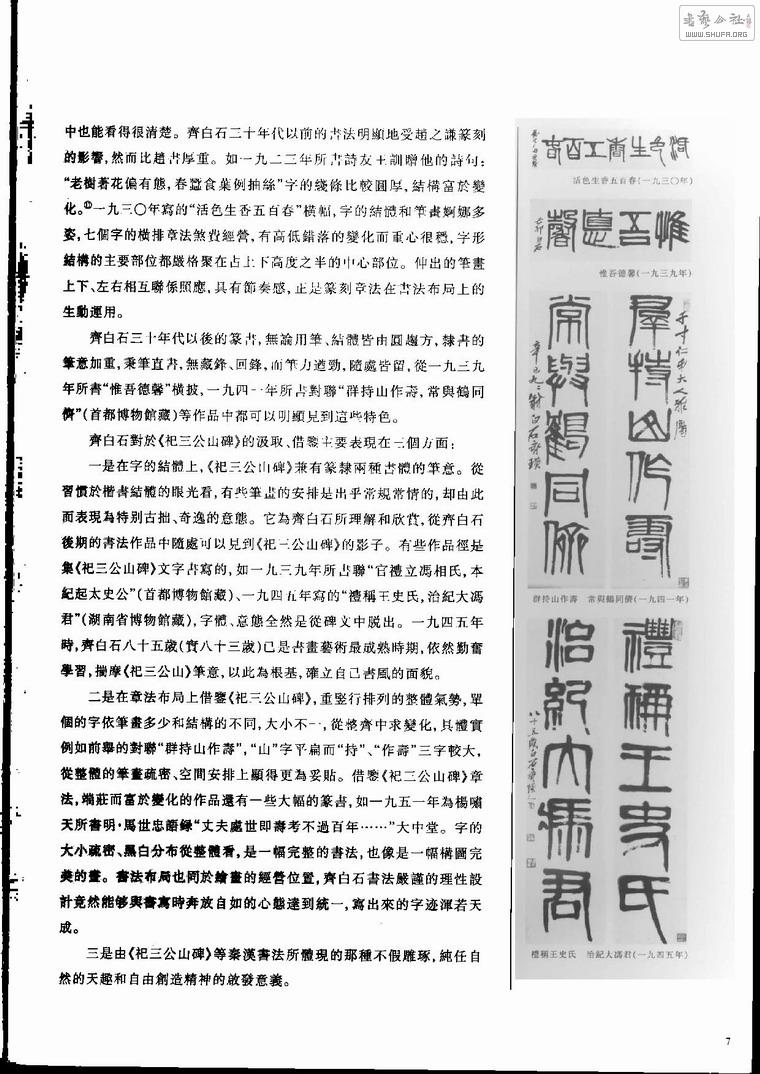 書藝公社
WWW.SHUFA.ORG
中也能看得很清楚。齊白石二十年代以前的書法明顯地受趙之謙篆刻
的影響,然而比趙書厚重。如一九二三年所書詩友王訓贈他的詩句:
“老樹著花偏有態,春蠶食葉例抽絲”字的綫條比較圓厚,結構富於變
化。①一九三〇年寫的“活色生香五百春”橫幅,字的結體和筆畫婀娜多
姿,七個字的橫排章法煞費經營,有高低錯落的變化而重心很穩,字形
結構的主要部位都嚴格聚在占上下高度之半的中心部位。伸出的筆畫
上下、左右相互聯係照應,具有節奏感,正是篆刻章法在書法布局上的
生動運用。
齊白石三十年代以後的篆書,無論用筆、結體皆由圓趨方,隸書的
筆意加重,秉筆直書,無藏鋒、回鋒,而筆力遒勁,隨處皆留,從一九三九
年所書“惟吾德馨”橫披,一九四一年所書對聯“群持山作壽,常與鶴同
儕”(首都博物館藏)等作品中都可以明顯見到這些特色。
齊白石對於《祀三公山碑》的汲取、借鑒主要表現在三個方面:
一是在字的結體上,《祀三公山碑》兼有篆隸兩種書體的筆意。從
習慣於楷書結體的眼光看,有些筆畫的安排是出乎常規常情的,却由此
而表現為特别古拙、奇逸的意態。它為齊白石所理解和欣賞,從齊白石
後期的書法作品中隨處可以見到《祀三公山碑》的影子。有些作品徑是
集《祀三公山碑》文字書寫的,如一九三九年所書聯“官禮立馮相氏,本
紀起太史公”(首都博物館藏)、一九四五年寫的“禮稱王史氏,治紀大馮
君”(湖南省博物館藏),字體、意態全然是從碑文中脱出。一九四五年
時,齊白石八十五歲(實八十三歲)已是書畫藝術最成熟時期,依然勤奮
學習,揣摩《祀三公山》筆意,以此為根基,確立自己書風的面貌。
二是在章法布局上借鑒《祀三公山碑》,重竪行排列的整體氣勢,單
個的字依筆畫多少和結構的不同,大小不一,從整齊中求變化,具體實
例如前舉的對聯“群持山作壽”,“山”字平扁而“持”、“作壽”三字較大,
從整體的筆畫疏密、空間安排上顯得更為妥貼。借鑒《祀三公山碑》章
法,端莊而富於變化的作品還有一些大幅的篆書,如一九五一年為楊嘯
天所書明·馬世忠語録“丈夫處世即壽考不過百年……”大中堂。字的
大小疏密、黑白分布從整體看,是一幅完整的書法,也像是一幅構圖完
美的畫。書法布局也同於繪畫的經營位置,齊白石書法嚴謹的理性設
計竟然能够與書寫時奔放自如的心態達到統一,寫出來的字迹渾若天
成。
三是由《祀三公山碑》等秦漢書法所體現的那種不假雕琢,純任自
然的天趣和自由創造精神的啟發意義。
活色生香五百春
活色生香五百春(一九三〇年)
惟吾德馨
惟吾德馨(一九三九年)
群持山作壽
常與鶴同儕
群持山作壽 常與鶴同儕(一九四一年)
禮稱王史氏
治紀大馮君
禮稱王史氏 治紀大馮君(一九四五年)
7